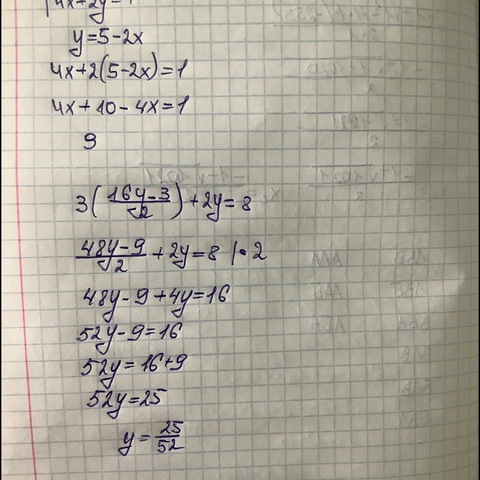 4x+2y=1
y=5-2x
4x+2(5-2x)=1
4x+10-4x=1
9
3(16y-3/2)+2y=8
48y-9/2+2y=8 |•2
48y-9+4y=16
52y-9=16
52y=16+9
52y=25
y=25/52